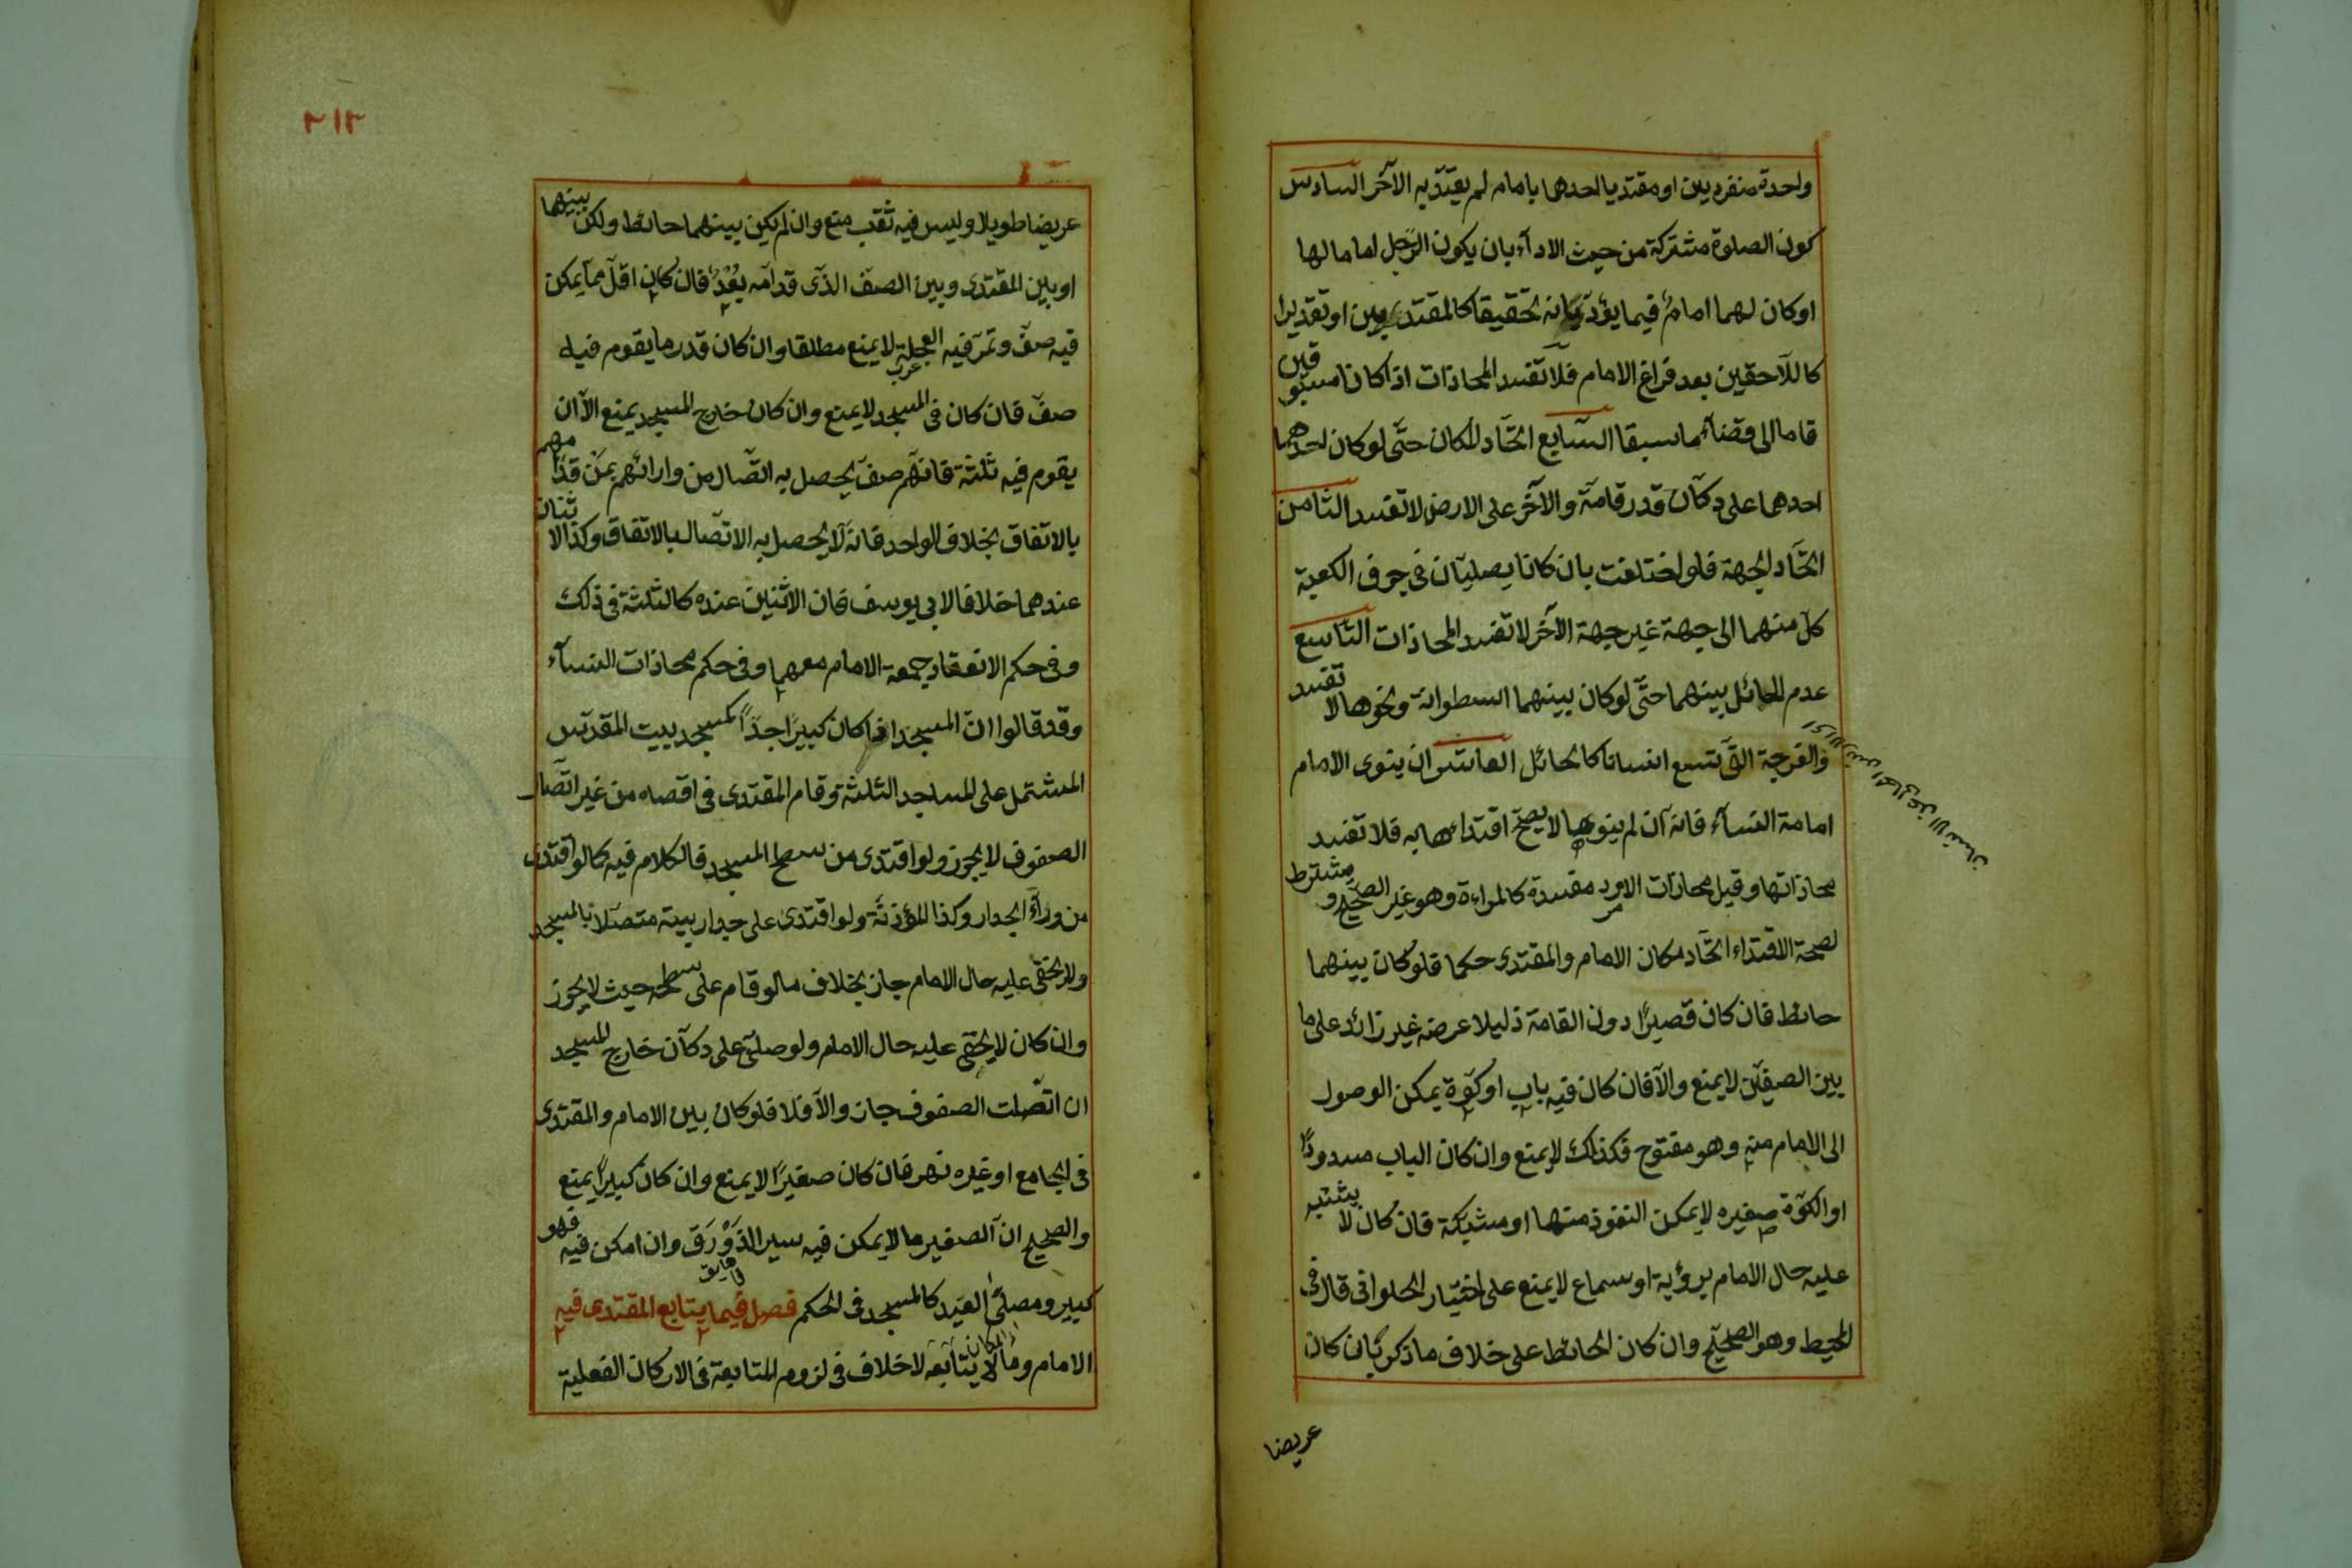 واحدة منفردين او مقتديا احدهما بامام لم يقتد به الآخر السادس
كون الصلوة مشتركة من حيث الادآء بان يكون الرّجل اماما لها
اوكان لهما امام فيما يؤديانه تحقيقا كالمقتديين او تقديرا
كاللآحقين بعد فراغ الامام فلا تفسد المحاذات اذا كانا مسبوقين
قاما الى قضآء ما سبقا السّابع اتّحاد المكان حتّى لو كان احدهما
احدهما على دكّان قدر قامة والآخر على الارض لا تفسد الثامن
اتّحاد الجهة فلو اختلفت بان كانا يصليان فى جوف الكعبة
كل منهما الى جهة غير جهة الآخر لا تفسد المحاذات التاسع
عدم الحائل بينهما حتّى لو كان بينهما اسطوانة ونحوها لا تفسد
والفرجة التى تسع انسانا كالحائل العاشر ان ينوى الامام
امامة النسآء فانه ان لم ينوها لا يصحّ اقتدائها به فلا تفسد
محاذاتها وقيل محاذات الامرد مفسدة كالمراءة وهو غير الصحيح ومشترط
لصحة الاقتداء اتّحاد مكان الامام والمقتدى حكما فلو كان بينهما
حائط فان كان قصيرًا دون القامة ذليلا عرضه غير زائد على ما
بين الصفين لا يمنع والّا فان كان فيه باب او كوّة يمكن الوصول
الى الامام منه وهو مفتوح فكذلك لا يمنع وان كان الباب مسدودًا
او الكوّة صغيره لا يمكن النفوذ منها او مشبّكة فان كان لا يشتبه
عليه حال الامام برؤية او سماع لا يمنع على اختيار الحلوانى قال فى
المحيط وهو الصحيح وان كان الحائط على خلاف ما ذكر بان كان
عريضا
٢١٢
عريضا طويلا وليس فيه ثقب منع وان لم يكن بينهما حائط ولكن بينهما
او بين المقتدى وبين الصف الذى قدامه بُعْدٌ فان كان اقلّ ممّا يمكن
فيه صفّ وتمرّ فيه العجلة لا يمنع مطلقا وان كان قدر ما يقوم فيه
صفّ فان كان فى المسجد لا يمنع وان كان خارج المسجد يمنع الّا ان
يقوم فيه ثلثة فانهم صفّ يحصل به اتّصال من وارائهم بمن قدّامهم
بالاتفاق بخلاف الواحد فانه لا يحصل به الاتصال بالاتفاق وكذا الاثنان
عندهما خلافا لابى يوسف فان الاثنين عنده كالثلثة فى ذلك
وفى حكم الانعقاد جمعة الامام معهما وفى حكم محاذات النسآء
وقد قالوا انّ المسجد اذا كان كبيرًا جدّاً كمسجد بيت المقدّس
المشتمل على المساجد الثلثة وقام المقتدى فى اقصاه من غير اتّصال
الصفوف لا يجوز ولو اقتدى من سطح المسجد فالكلام فيه كما لو اقتدى
من ورآء الجدار وكذا المؤذنة ولو اقتدى على جدار بيته متصلا بالمسجد
ولا يخفى عليه حال الامام جاز بخلاف ما لو قام على سطحه حيث لا يجوز
وان كان لا يخفى عليه حال الامام ولو صلى على دكان خارج المسجد
ان اتّصلت الصفوف جاز والّا فلا فلو كان بين الامام والمقتدى
فى الجامع او غيره نهر فان كان صغيرًا لا يمنع وان كان كبيرًا يمنع
والصحيح انّ الصغير ما لا يمكن فيه سير الزَوْرَق وان امكن فيه فهو
كبير ومصلّى العيد كالمسجد فى الحكم فصل فيما يتابع المقتدى فيه
الامام وما لا يتابعه لا خلاف فى لزوم المتابعة فى الاركان الفعلية